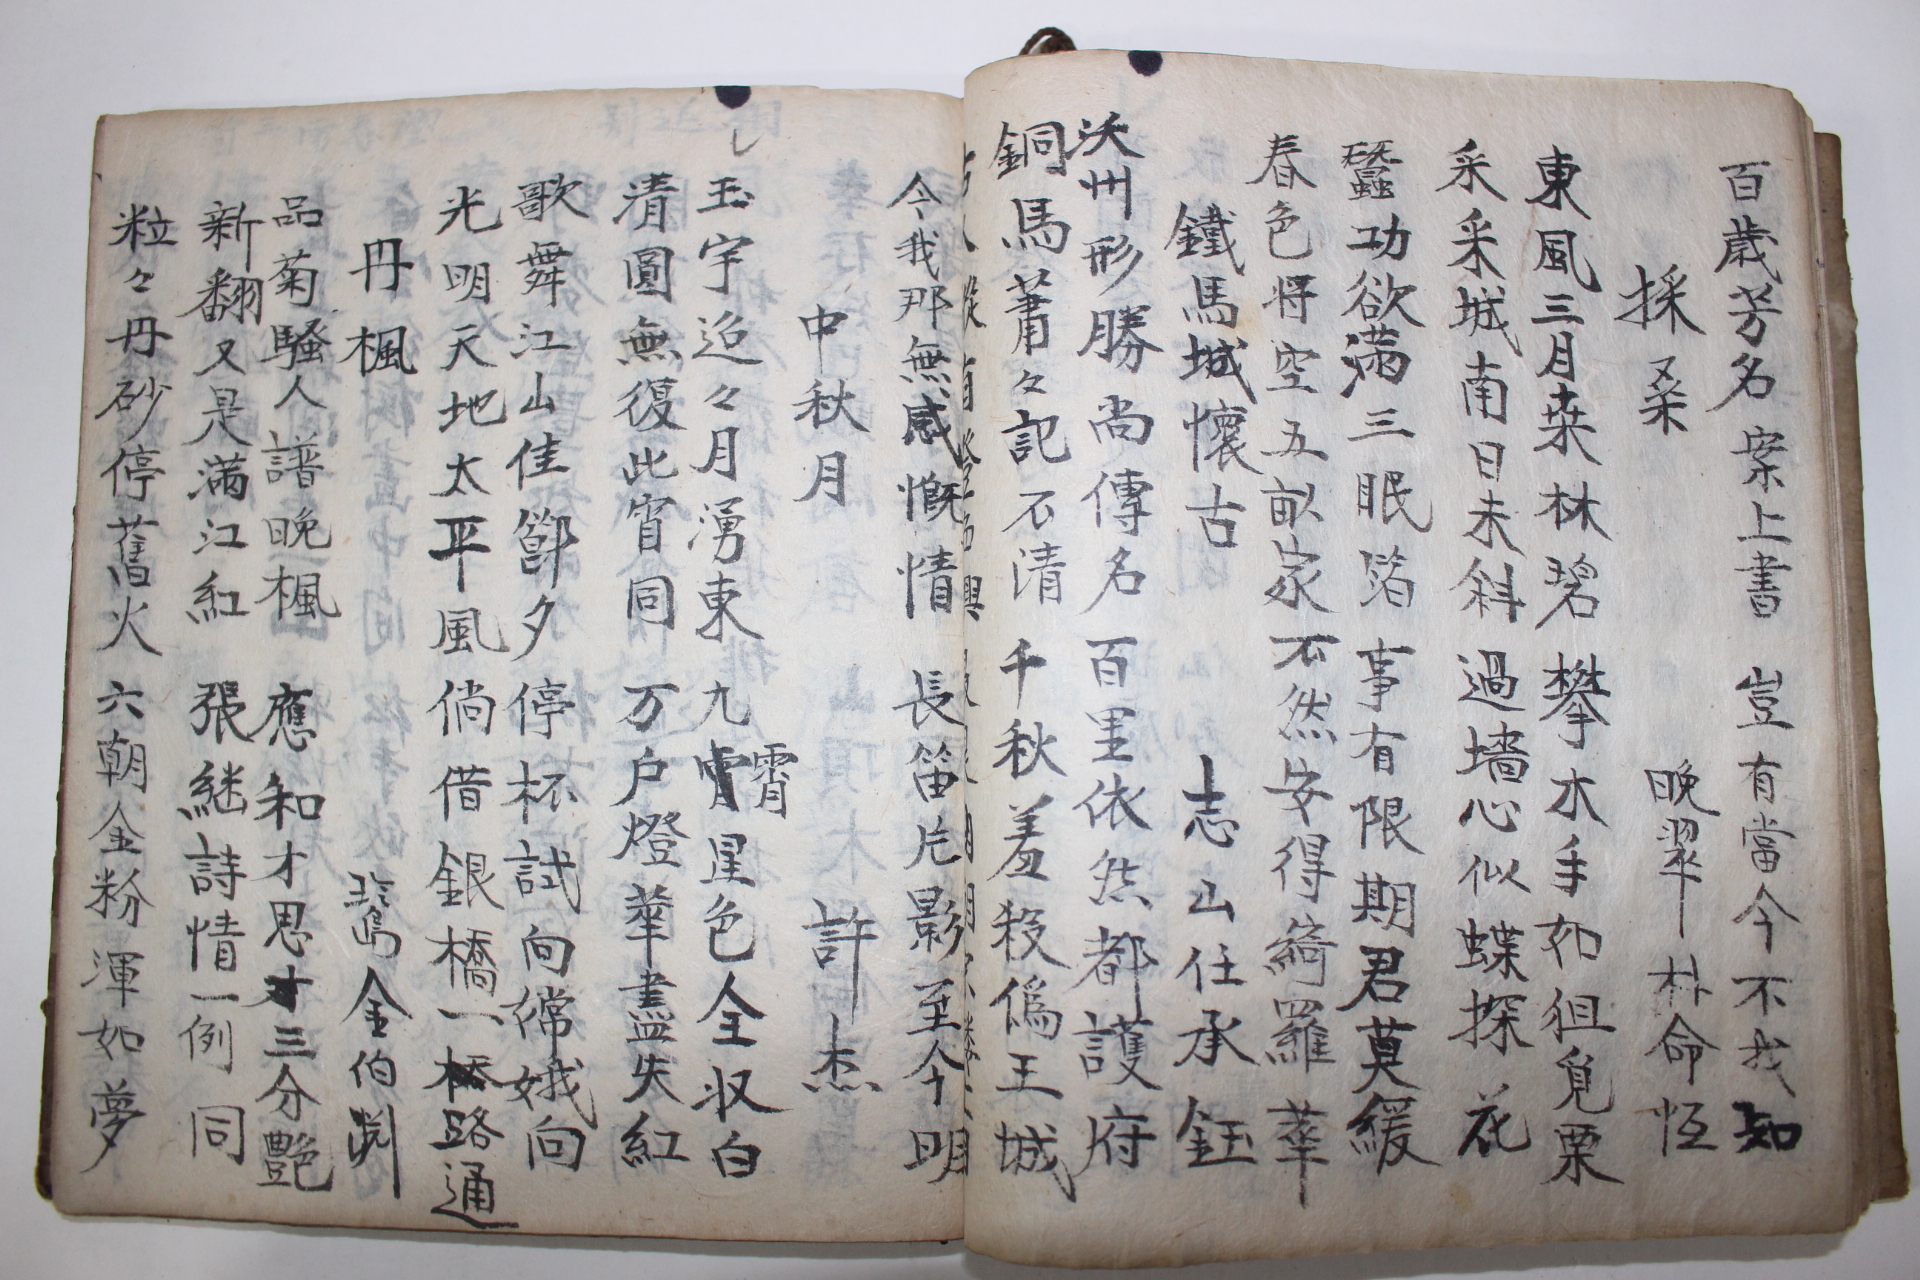 百歲芳名案上書 豈有當今不我知
採桑 晩翠 朴命恒
東風三月桒林碧 攀木手如徂覓栗
采采城南日未斜 過墻心似蝶探花
蠶功欲滿三眠箔 事有限期君莫緩
春色將空五畝家 不然安得綺羅華
鐵馬城懷古 志山 任承鈺
沃州形勝尚傳名 百里依然都護府
銅馬萧々記不清 千秋羞殺僞王城
今我那無感慨情 長笛片影至今明
中秋月 許杰
玉宇迢々月湧東 九霄星色全収白
清圓無復此宵同 万户燈華盡失紅
歌舞江山佳節夕 停杯試向嫦娥问
光明天地太平風 倘借銀橋一路通
丹楓 金伯渕
品菊騷人譜晩楓 應和才思三分艶
新翻又是滿江紅 張継詩情一例同
粒々丹砂停舊火 六朝金粉渾如夢